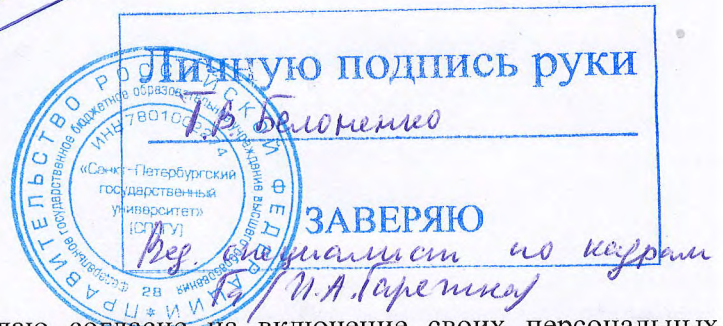 Личную подпись руки
Т.В. Белоненко
ЗАВЕРЯЮ
Вед. специалист по кадрам
И.А.
ПРАВИТЕЛЬСТВО РОССИЙСКОЙ ФЕДЕРАЦИИ
федеральное государственное бюджетное образовательное учреждение высшего образования
ИНН
«Санкт-Петербургский
государственный
университет»
(СПбГУ)
28
согласие на включение своих персональных